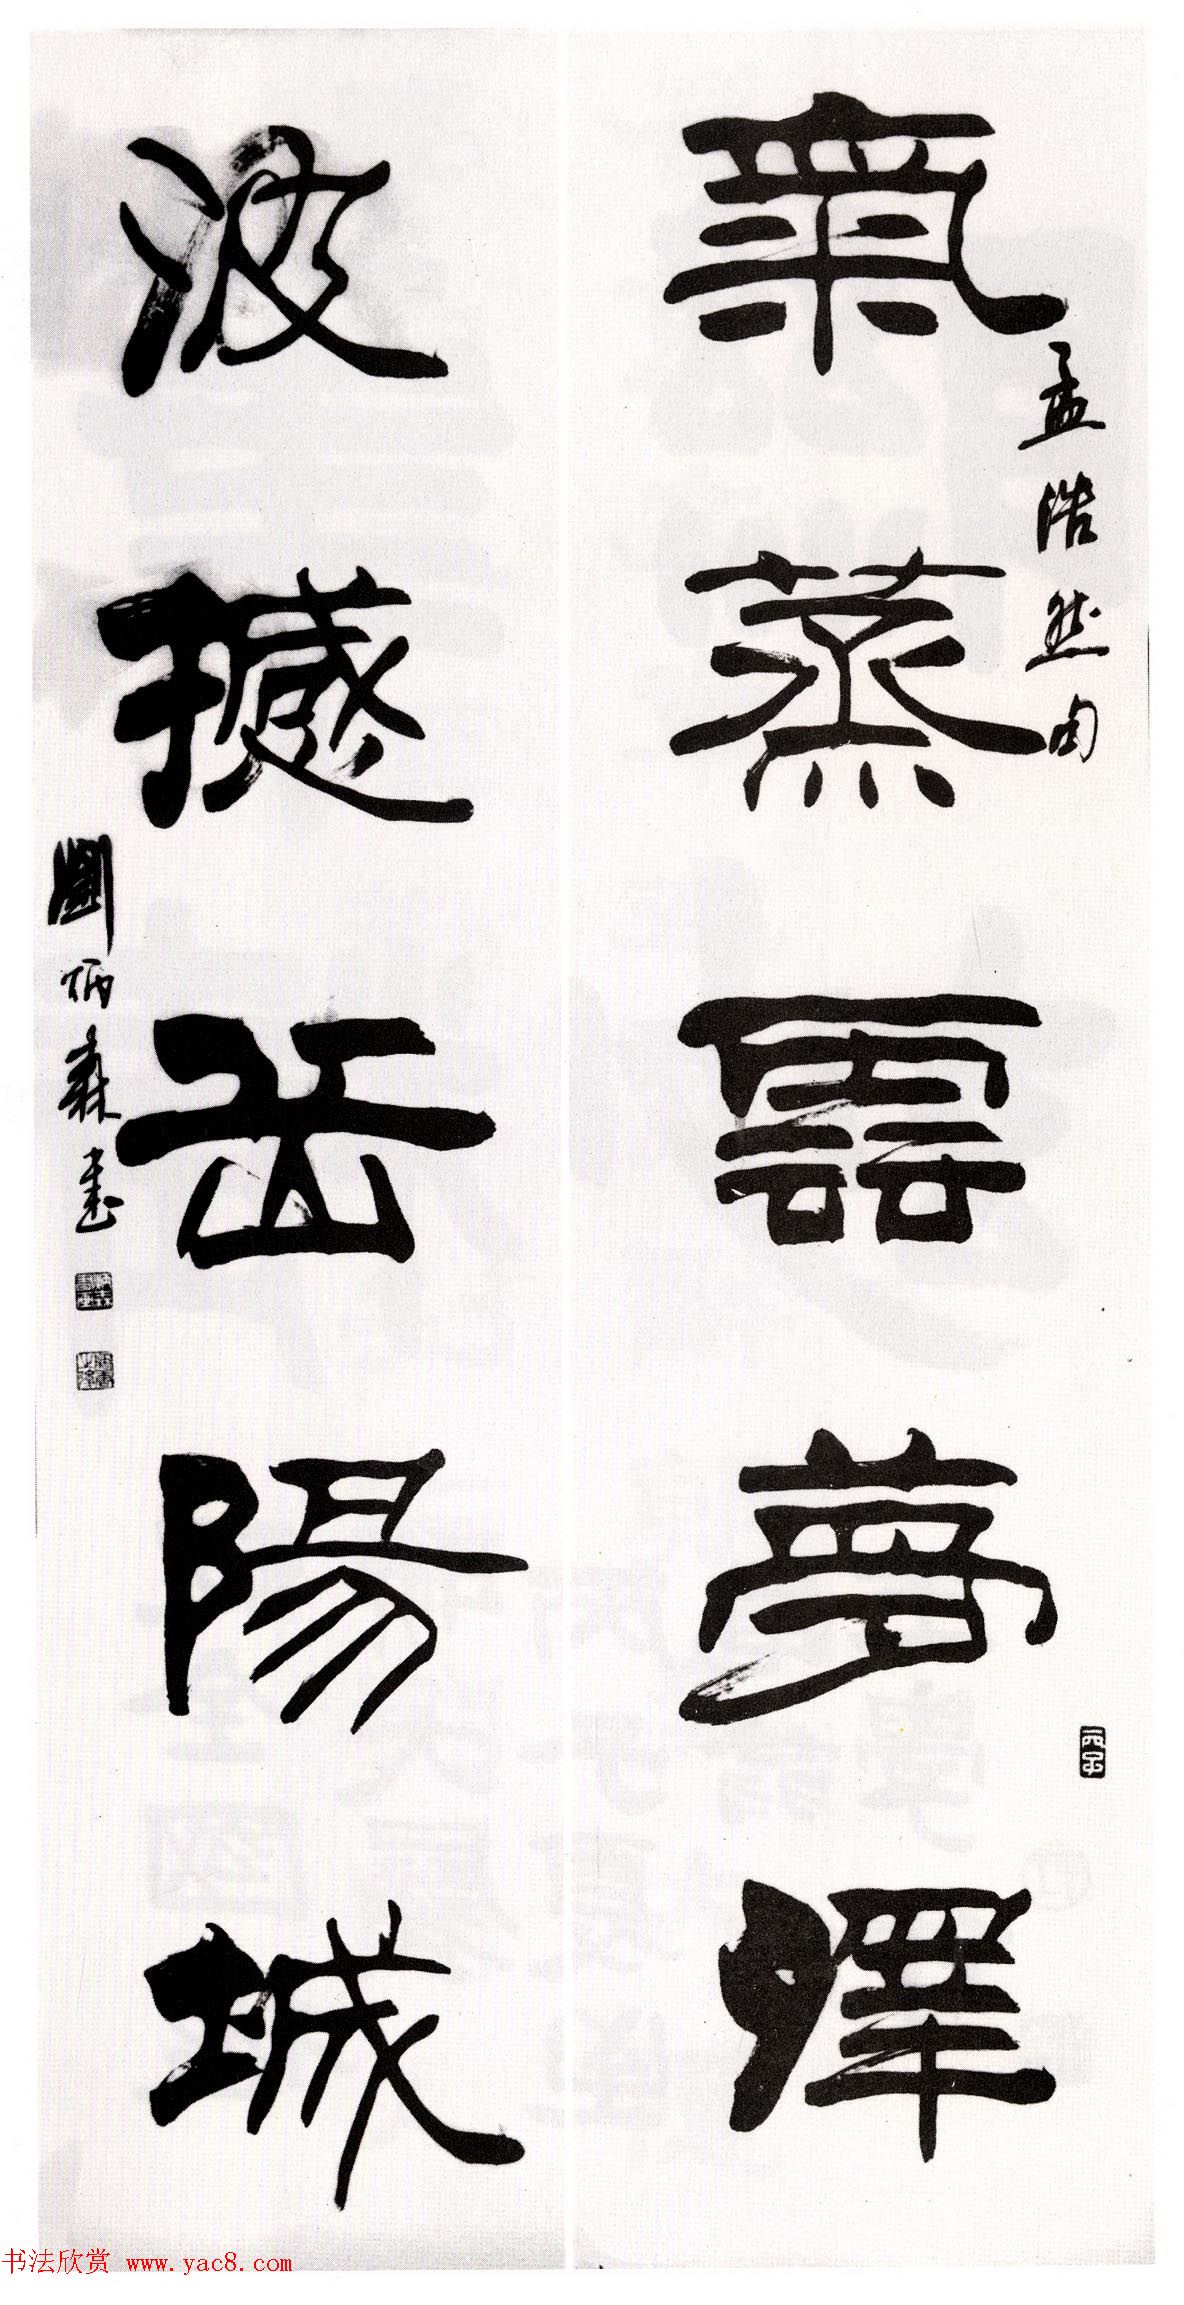 氣蒸雲夢澤
孟浩然句
波撼岳陽城
劉炳森書
书法欣赏 www.yac8.com